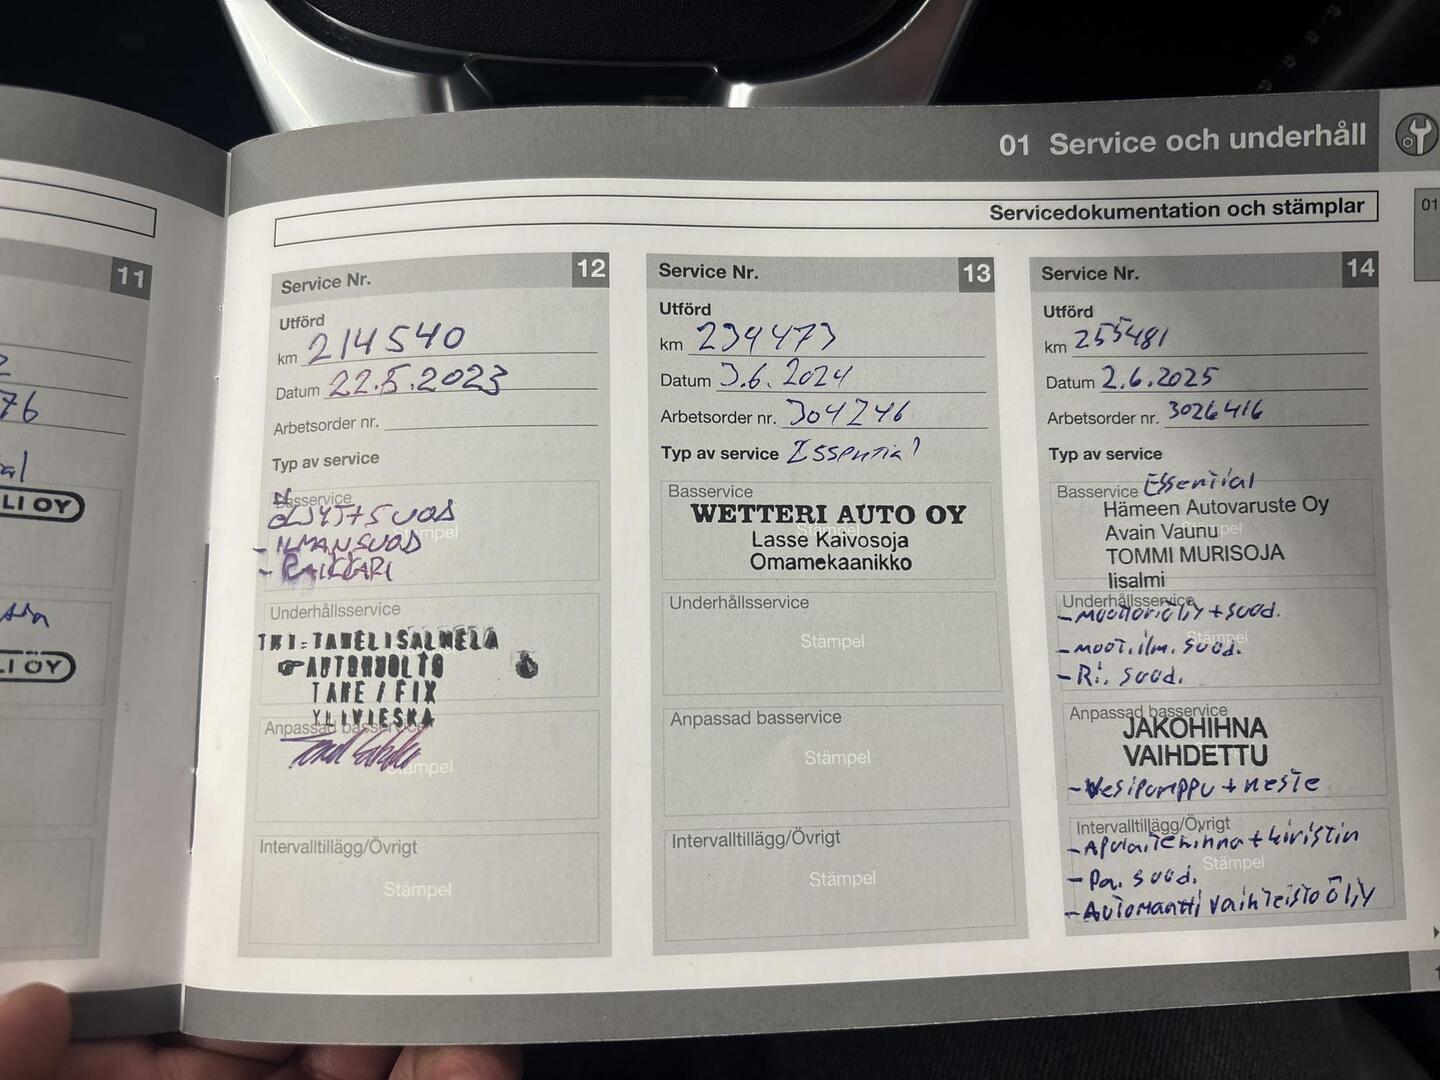 01 Service och underhåll
Servicedokumentation och stämplar
01
11
76
LI OY
LI OY
Service Nr. 12
Utförd
km 214540
Datum 22.5.2023
Arbetsorder nr.
Typ av service
Basservice
ÖLJYT+SUOD
- ILMANSUOD
- RAIKKARI
Underhållsservice
TMI:TANELI SALMELA
AUTOHUOLTO
TANE / FIX
YLIVIESKA
Anpassad basservice
Stämpel
Intervalltillägg/Övrigt
Stämpel
Service Nr. 13
Utförd
km 234473
Datum 3.6.2024
Arbetsorder nr. 304246
Typ av service Essential
Basservice
WETTERI AUTO OY
Lasse Kaivosoja
Omamekaanikko
Underhållsservice
Stämpel
Anpassad basservice
Stämpel
Intervalltillägg/Övrigt
Stämpel
Service Nr. 14
Utförd
km 255481
Datum 2.6.2025
Arbetsorder nr. 3026416
Typ av service
Basservice Essential
Hämeen Autovaruste Oy
Avain Vaunu
TOMMI MURISOJA
Iisalmi
Underhållsservice
- moottoriöljy + suod.
- moot.ilm. suod.
- Ri. suod.
Anpassad basservice
JAKOHIHNA
VAIHDETTU
- Vesipumppu + neste
Intervalltillägg/Övrigt
- Apulaitehihna + kiristin
- Pa. suod.
- Automaatti vaihteisto öljy